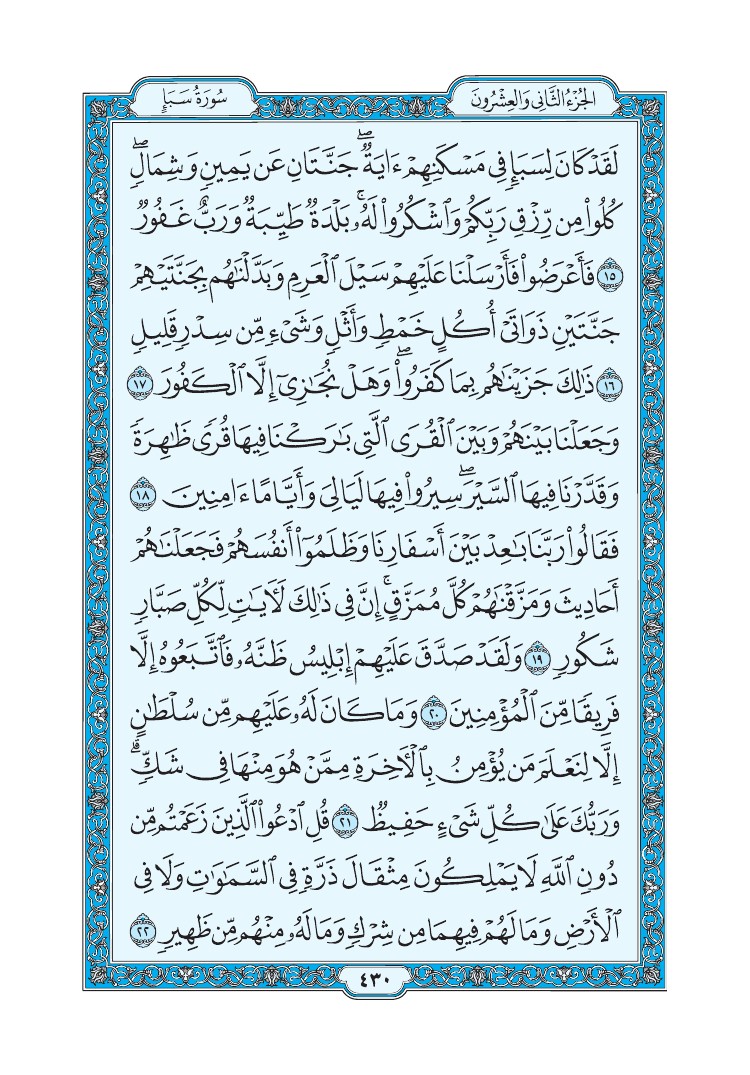 الجزء الثاني والعشرون
سورة سبإ
لَقَدْ كَانَ لِسَبَإٍ فِى مَسْكَنِهِمْ ءَايَةٌ ۖ جَنَّتَانِ عَن يَمِينٍ وَشِمَالٍ ۖ
كُلُوا۟ مِن رِّزْقِ رَبِّكُمْ وَٱشْكُرُوا۟ لَهُۥ ۚ بَلْدَةٌ طَيِّبَةٌ وَرَبٌّ غَفُورٌ
١٥ فَأَعْرَضُوا۟ فَأَرْسَلْنَا عَلَيْهِمْ سَيْلَ ٱلْعَرِمِ وَبَدَّلْنَٰهُم بِجَنَّتَيْهِمْ
جَنَّتَيْنِ ذَوَاتَىْ أُكُلٍ خَمْطٍ وَأَثْلٍ وَشَىْءٍ مِّن سِدْرٍ قَلِيلٍ
١٦ ذَٰلِكَ جَزَيْنَٰهُم بِمَا كَفَرُوا۟ ۖ وَهَلْ نُجَٰزِىٓ إِلَّا ٱلْكَفُورَ ١٧
وَجَعَلْنَا بَيْنَهُمْ وَبَيْنَ ٱلْقُرَى ٱلَّتِى بَٰرَكْنَا فِيهَا قُرًى ظَٰهِرَةً
وَقَدَّرْنَا فِيهَا ٱلسَّيْرَ ۖ سِيرُوا۟ فِيهَا لَيَالِىَ وَأَيَّامًا ءَامِنِينَ ١٨
فَقَالُوا۟ رَبَّنَا بَٰعِدْ بَيْنَ أَسْفَارِنَا وَظَلَمُوٓا۟ أَنفُسَهُمْ فَجَعَلْنَٰهُمْ
أَحَادِيثَ وَمَزَّقْنَٰهُمْ كُلَّ مُمَزَّقٍ ۚ إِنَّ فِى ذَٰلِكَ لَءَايَٰتٍ لِّكُلِّ صَبَّارٍ
شَكُورٍ ١٩ وَلَقَدْ صَدَّقَ عَلَيْهِمْ إِبْلِيسُ ظَنَّهُۥ فَٱتَّبَعُوهُ إِلَّا
فَرِيقًا مِّنَ ٱلْمُؤْمِنِينَ ٢٠ وَمَا كَانَ لَهُۥ عَلَيْهِم مِّن سُلْطَٰنٍ
إِلَّا لِنَعْلَمَ مَن يُؤْمِنُ بِٱلْءَاخِرَةِ مِمَّنْ هُوَ مِنْهَا فِى شَكٍّ ۗ
وَرَبُّكَ عَلَىٰ كُلِّ شَىْءٍ حَفِيظٌ ٢١ قُلِ ٱدْعُوا۟ ٱلَّذِينَ زَعَمْتُم مِّن
دُونِ ٱللَّهِ لَا يَمْلِكُونَ مِثْقَالَ ذَرَّةٍ فِى ٱلسَّمَٰوَٰتِ وَلَا فِى
ٱلْأَرْضِ وَمَا لَهُمْ فِيهِمَا مِن شِرْكٍ وَمَا لَهُۥ مِنْهُم مِّن ظَهِيرٍ ٢٢
٤٣٠